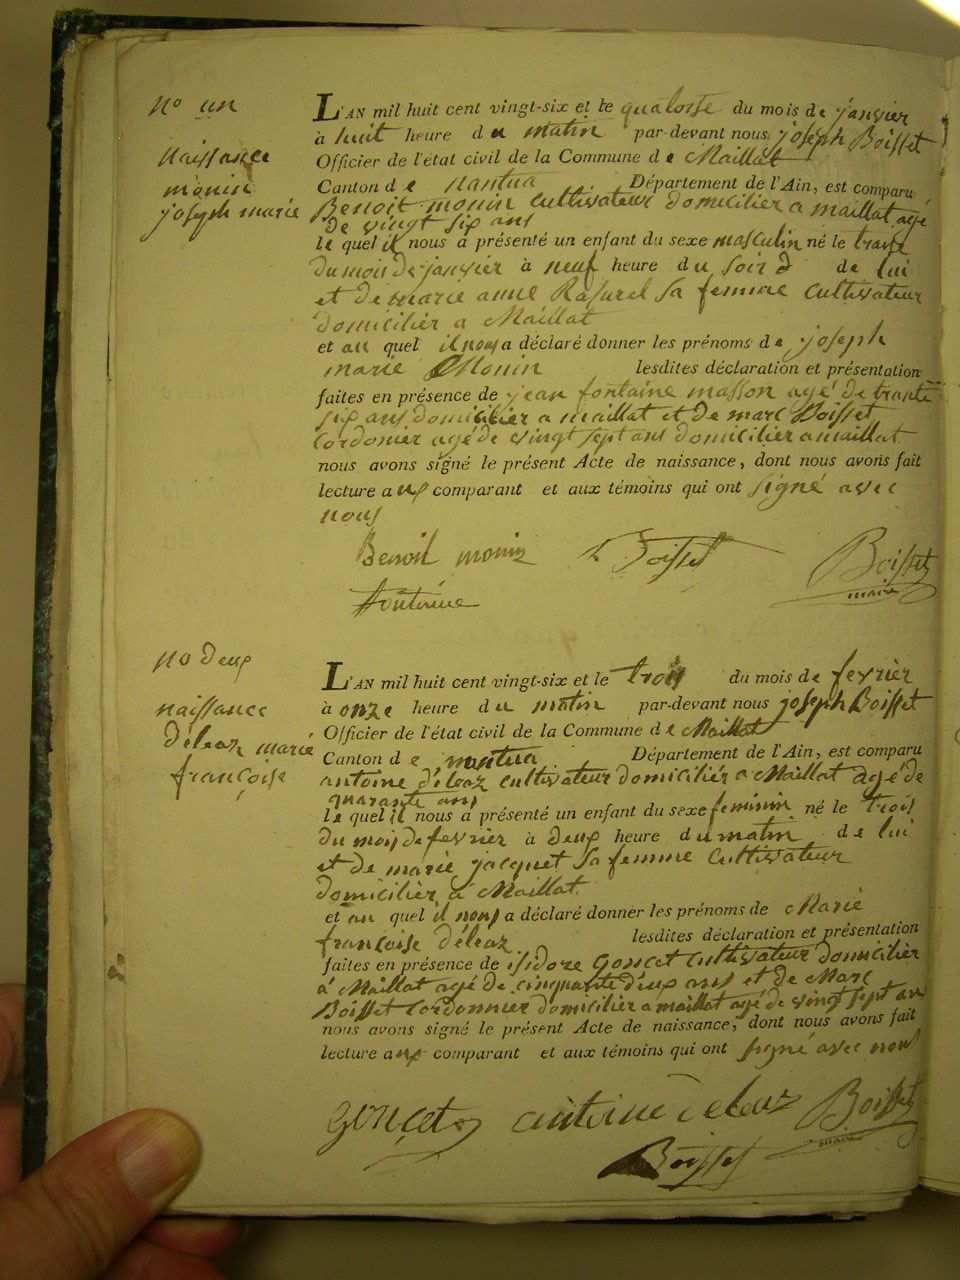 No un
naissance
monin
joseph marie
L'AN mil huit cent vingt-six et le quatorse du mois de janvier
à huit heure du matin par-devant nous joseph Boisset
Officier de l'état civil de la Commune de Maillat
Canton de nantua Département de l'Ain, est comparu
Benoit monin cultivateur domicilier a maillat agé
de vingt six ans
le quel il nous a présenté un enfant du sexe masculin né le
du mois de janvier à neuf heure du soir de lui
et de marie anne Rasurel sa femme cultivateur
domicilier a Maillat
et au quel il nous a déclaré donner les prénoms de joseph
marie Monin lesdites déclaration et présentation
faites en présence de jean fontaine masson agé de trante
six ans domicilier a maillat et de marc Boisset
cordonier agé de vingt sept ans domicilier a maillat
nous avons signé le présent Acte de naissance, dont nous avons fait
lecture aux comparant et aux témoins qui ont signé avec
nous
Benoit monin Boisset Boisset
maire
fontaine
no deux
naissance
déléaz marie
françoise
L'AN mil huit cent vingt-six et le trois du mois de fevrièr
à onze heure du matin par-devant nous joseph Boisset
Officier de l'état civil de la Commune de Maillat
Canton de nantua Département de l'Ain, est comparu
antoine déléaz cultivateur domiciliér a Maillat agé de
quarante ans
le quel il nous a présenté un enfant du sexe feminin né le trois
du mois de fevrièr à deux heure du matin de lui
et de marie jacquet sa femme cultivateur
domicilièr à Maillat
et au quel il nous a déclaré donner les prénoms de Marie
françoise déléaz lesdites déclaration et présentation
faites en présence de isidore Goncet cultivateur domicilièr
à Maillat agé de cinquante deux ans et de Marc
Boisset cordonnier domicilièr a maillat agé de vingt sept ans
nous avons signé le présent Acte de naissance, dont nous avons fait
lecture aux comparant et aux témoins qui ont signé avec nous
gonçet antoine deleaz Boisset
maire
Boisset